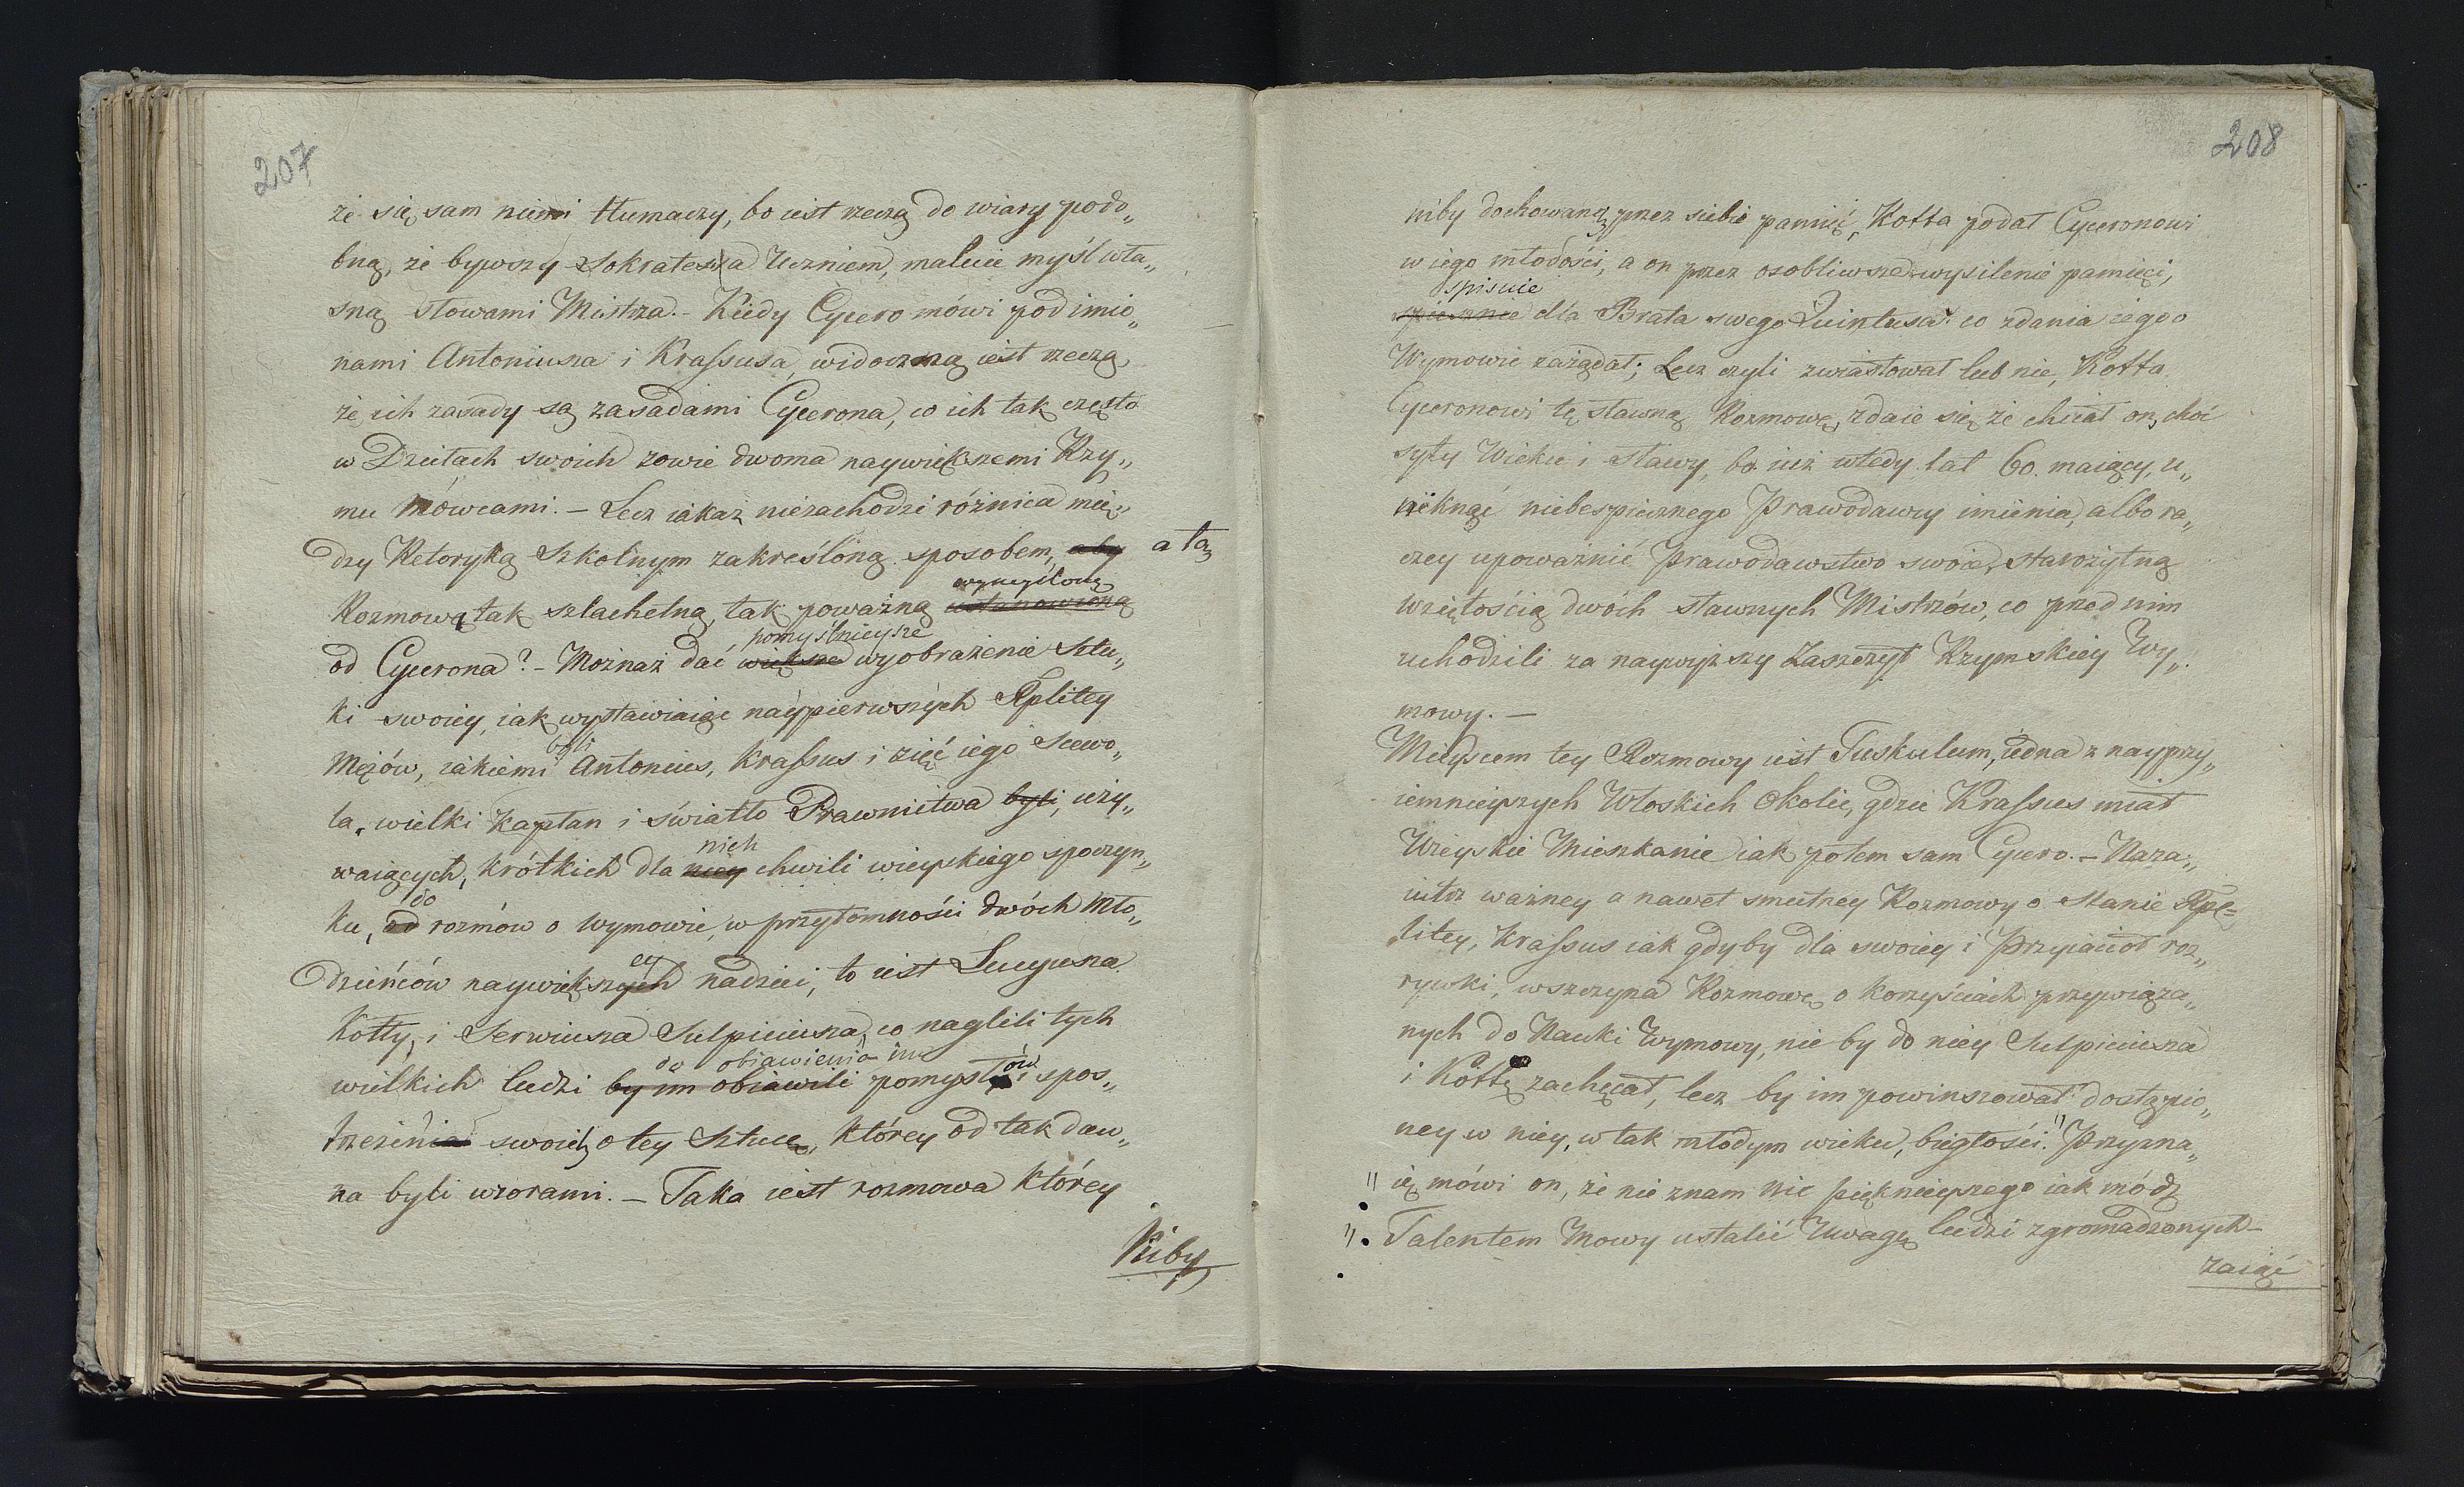 207
że się sam niemi tłumaczy, bo iest rzeczą do wiary podo„
bną, że bywszy Sokratesa Uczniem, maluie myśl wła„
sną słowami Mistrza. – Kiedy Cycero mówi pod imio„
nami Antoniusza i Krassusa, widoczną iest rzeczą,
że ich zasady są zasadami Cycerona, co ich tak często
w Dziełach swoich zowie dwoma naywiększemi Rzy„
mu Mówcami. – Lecz iakaż niezachodzi różnica mię„
dzy Retoryką Szkolnym zakreśloną sposobem, aby a tą
wymyśloną
Rozmową tak szlachetną, tak poważną ustanowioną
pomyślnieysze
od Cycerona? – Możnaż dać większe wyobrażenie Sztu„
ki swoiey, iak wystawiaiąc naypierwszych Rplitey
byli
Mężów, iakiemi Antonius, Krassus i zięć iego Scewo„
la, wielki Kapłan i światło Prawnictwa byli, uży„
nich
waiących, krótkich dla niey chwili wieyskiego spoczyn„
do
ku, od rozmów o Wymowie, w przytomności dwóch Mło„
ey
dzieńców naywiększych nadziei, to iest Lucyusza
Kotty, i Serwiusza Sulpiciusza, co naglili tych
do obiawienia im
wielkich ludzi by im obiawili pomysłów i spos„
trzeżeń swoich o tey Sztuce, którey od tak daw„
na byli wzorami. – Taka iest rozmowa którey
Niby
208
niby dochowaną przez siebie pamięć, Kotta podał Cyceronowi
w iego młodości, a on przez osobliwsze wysilenie pamięci,
spisuie
dla Brata swego Quintusa: co zdania iego o
Wymowie zażądał; Lecz czyli zwiastował lub nie, Kotta
Cyceronowi tę sławną Rozmowę, zdaie się że chciał on, choć
syty Wieku i sławy, bo iuż wtedy lat 60. maiący, u„
niknąć niebespiecznego Prawodawcy imienia, albo ra„
czey upoważnić Prawodawstwo swoie, starożytną
wziętością dwóch sławnych Mistrzów, co przed nim
uchodzili za naywyższy Zaszczyt Rzymskiey Wy„
mowy. –
Mieyscem tey Rozmowy iest Tuskulum, iedna z nayprzy„
iemnieyszych Włoskich Okolic, gdzie Krassus miał
Wieyskie Mieszkanie iak potem sam Cycero. – Naza„
iutrz ważney a nawet smutney Rozmowy o Stanie Rpl=
litey, Krassus iak gdyby dla swoiey i Przyiaciół roz„
rywki, wszczyna Rozmowę o korzyściach przywiąza„
nych do Nauki Wymowy, nie by do niey Sulpiciusza
i Kottę zachęcał, lecz by im powinszował dostąpio„
ney w niey, w tak młodym wieku, biegłości. "Przyzna„
" ię mówi on, że nie znam nic pięknieyszego iak módz
" Talentem Mowy ustalić Uwagę ludzi zgromadzonych –
zaiąć